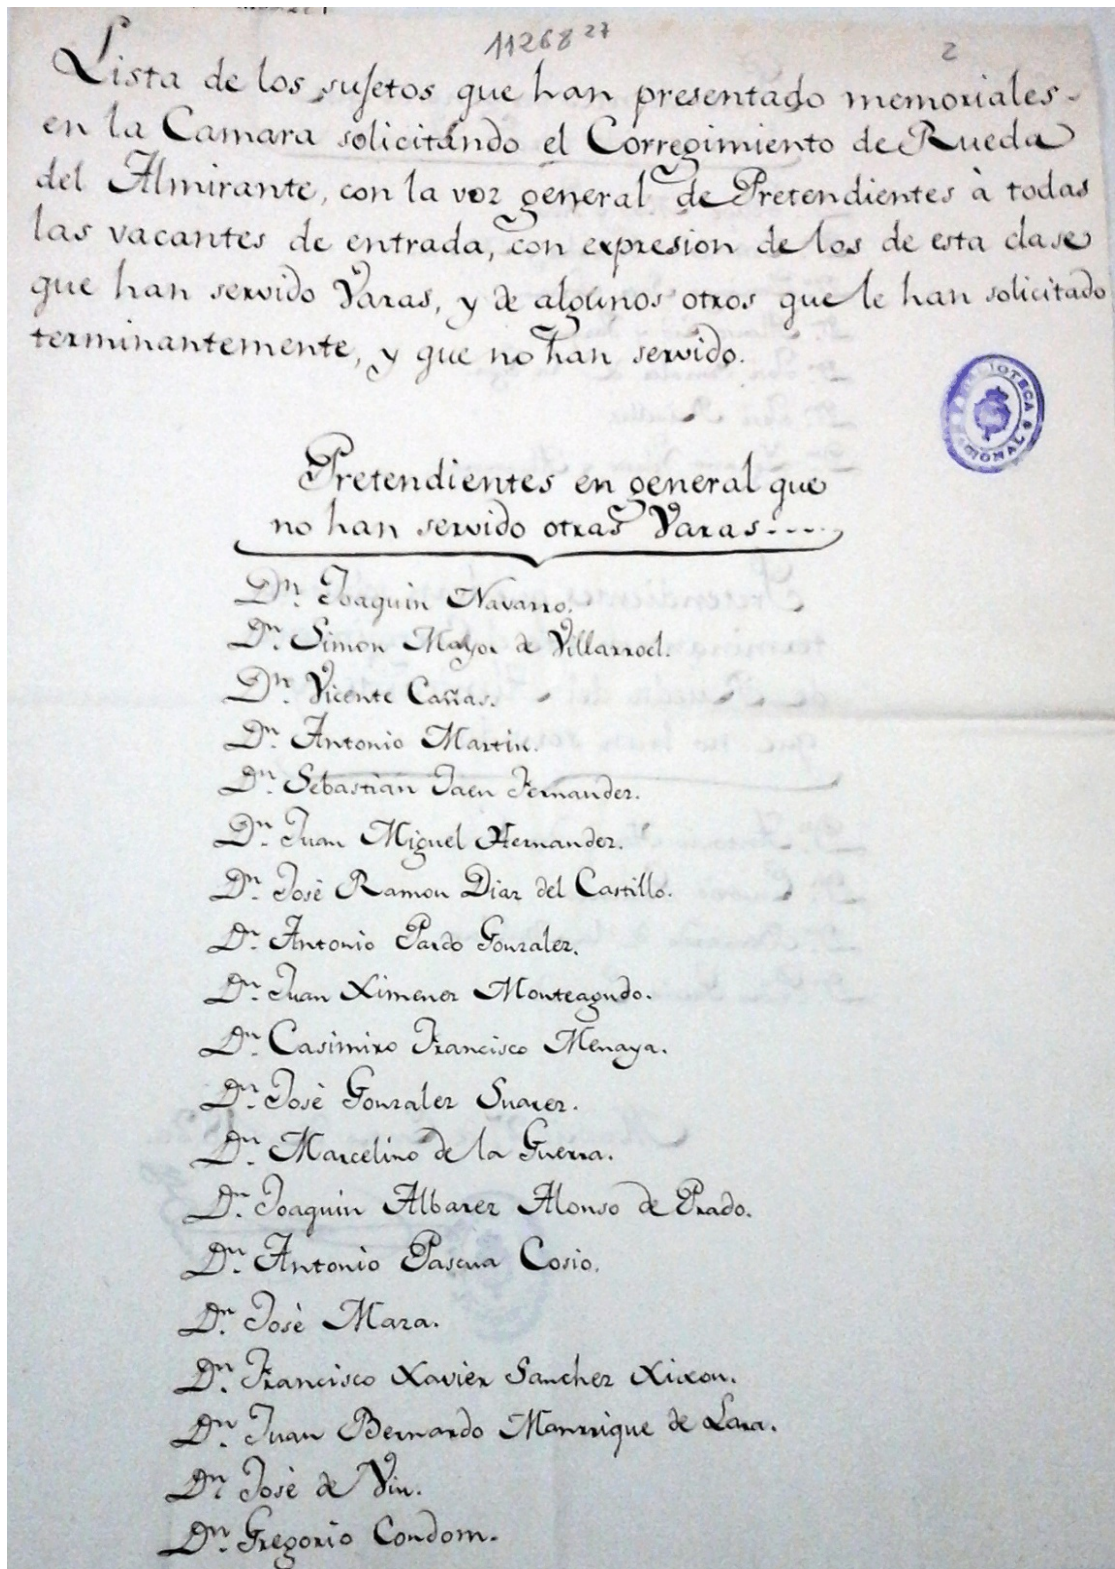 11268 27
2
Lista de los sujetos que han presentado memoriales
en la Camara solicitando el Corregimiento de Rueda
del Almirante, con la voz general de Pretendientes à todas
las vacantes de entrada, con expresion de los de esta clase
que han servido Varas, y de algunos otros que le han solicitado
terminantemente, y que no han servido.
BIBLIOTECA NACIONAL
Pretendientes en general que
no han servido otras Varas....
Dn. Joaquin Navarro.
Dn. Simon Mayor de Villarroel.
Dn. Vicente Cañas.
Dn. Antonio Martin.
Dn. Sebastian Jaen Fernandez.
Dn. Juan Miguel Hernandez.
Dn. Josè Ramon Diaz del Castillo.
Dn. Antonio Pardo Gonzalez.
Dn. Juan Ximenez Monteagudo.
Dn. Casimiro Francisco Menaya.
Dn. Josè Gonzalez Suarez.
Dn. Marcelino de la Guerra.
Dn. Joaquin Albarez Alonso de Prado.
Dn. Antonio Pascua Cosio.
Dn. Josè Maza.
Dn. Francisco Xavier Sanchez Xixon.
Dn. Juan Bernardo Manrrique de Lara.
Dn. Josè de Viu.
Dn. Gregorio Condom.